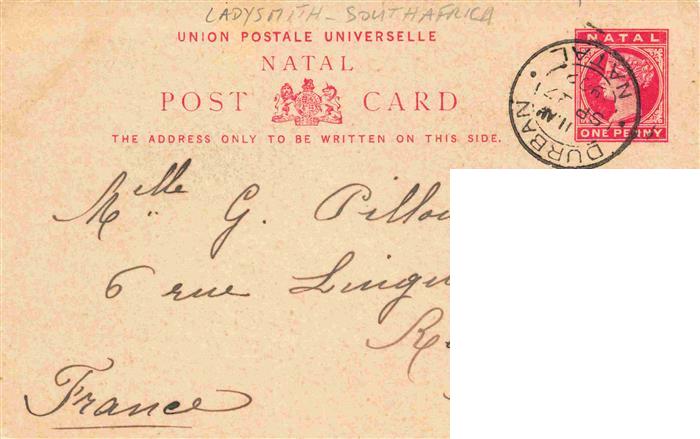 LADYSMITH - SOUTH AFRICA
UNION POSTALE UNIVERSELLE
NATAL
POST CARD
THE ADDRESS ONLY TO BE WRITTEN ON THIS SIDE.
NATAL
ONE PENNY
DURBAN
NATAL
Mlle G.
6 rue
France